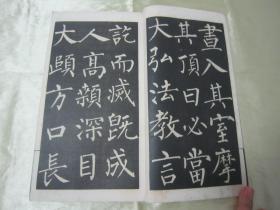 晝入其室摩
其頂曰必當
大弘法教言
訖而滅既成
人高顙深目
大頤方口長